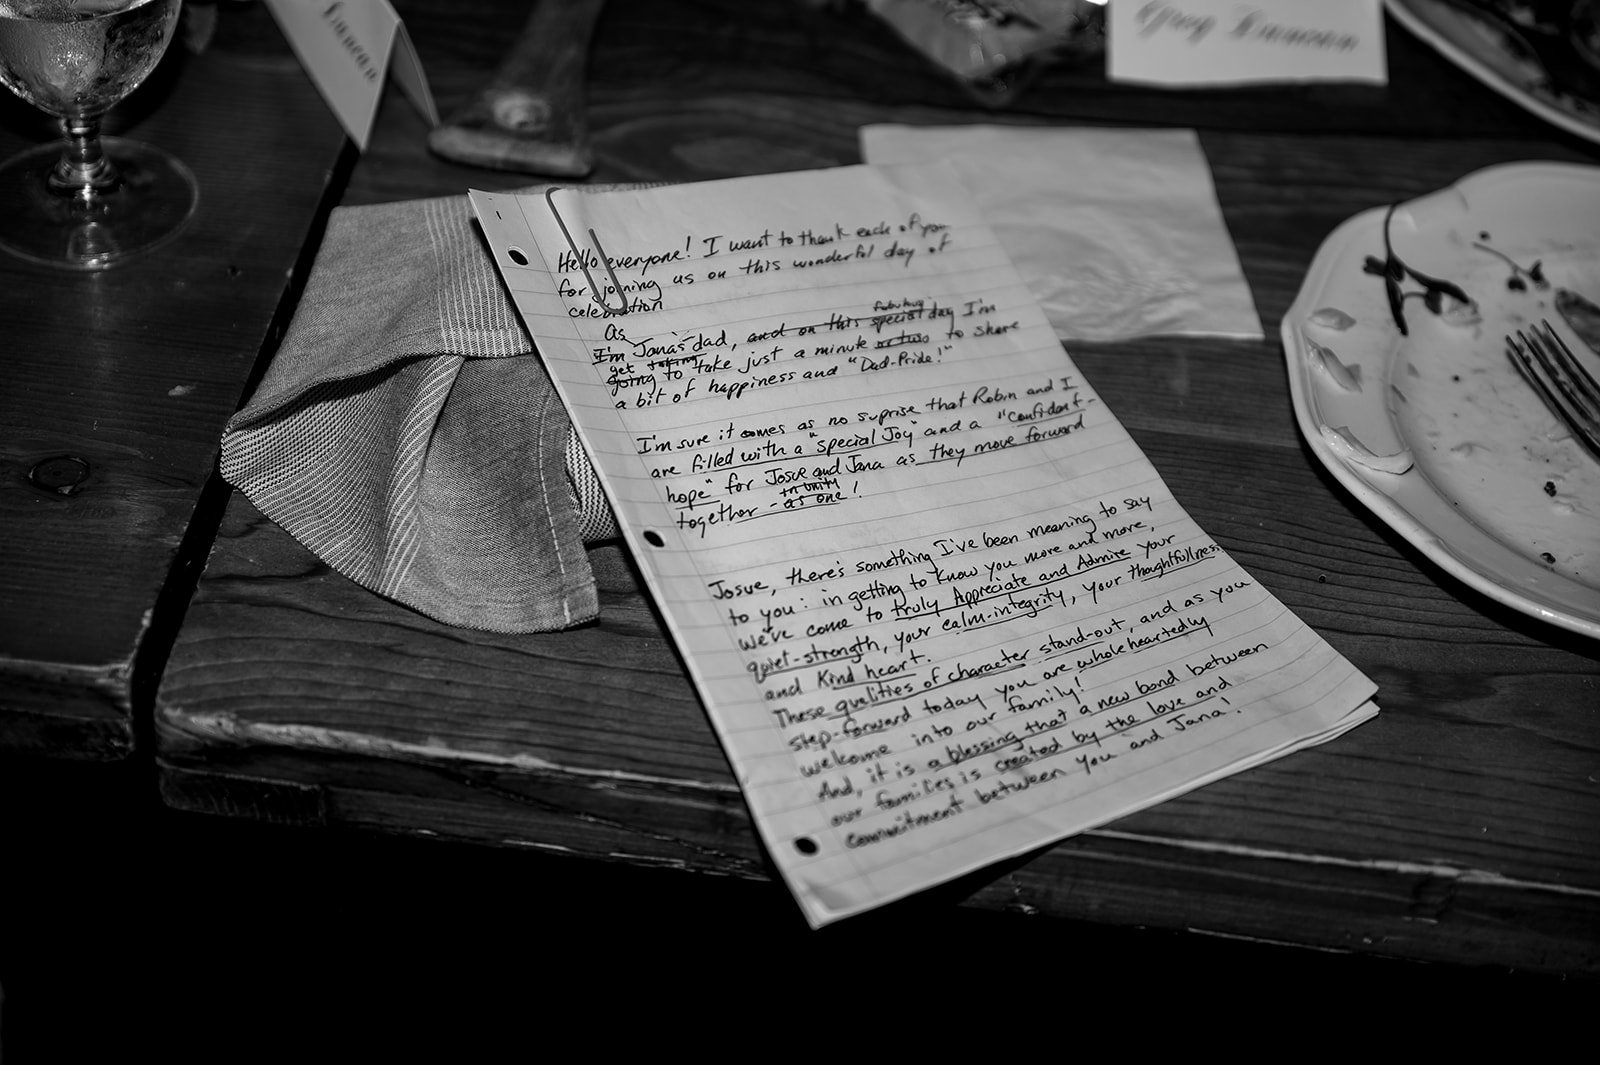 Duncan
Greg Duncan
1
Hello everyone! I want to thank each of you
for joining us on this wonderful day of
celebration
As
I'm Jana's dad, and on this special day I'm
get taking
going to take just a minute or two to share
a bit of happiness and "Dad-Pride!"
I'm sure it comes as no suprise that Robin and I
are filled with a "special Joy" and a "confident-
hope" for Josue and Jana as they move forward
in unity
together - as one!
Josue, there's something I've been meaning to say
to you: in getting to know you more and more,
we've come to truly Appreciate and Admire your
quiet-strength, your calm-integrity, your thoughtfullness,
and kind heart.
These qualities of character stand-out, and as you
step-forward today you are wholeheartedly
welcome into our family!
And, it is a blessing that a new bond between
our families is created by the love and
commitment between you and Jana!